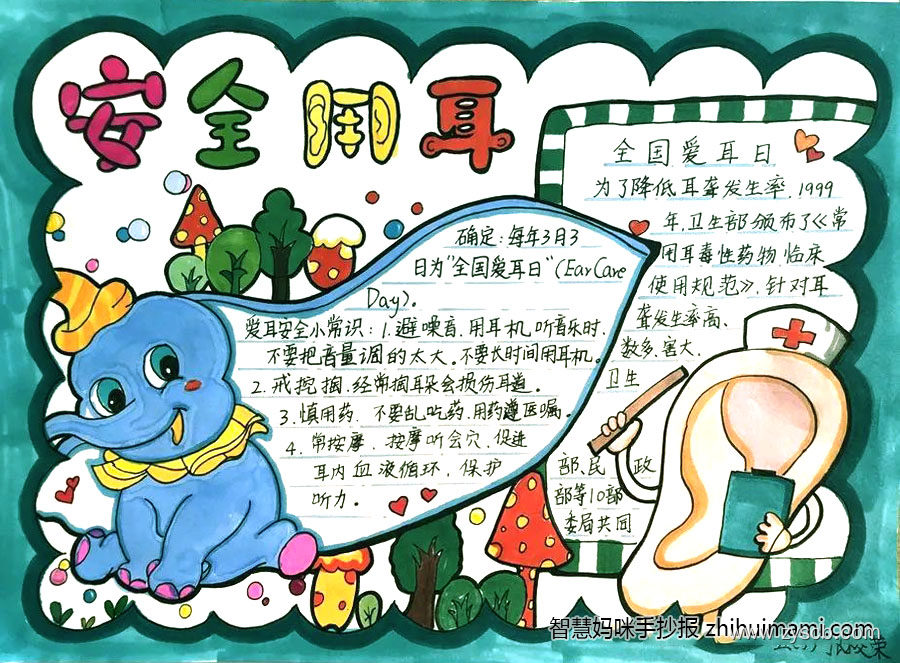 安全用耳
确定:每年3月3
日为"全国爱耳日"(Ear Care
Day)。
爱耳安全小常识:1.避噪音.用耳机听音乐时.
不要把音量调的太大。不要长时间用耳机。
2.戒挖掏.经常掏耳朵会损伤耳道。
3.慎用药.不要乱吃药.用药遵医嘱。
4.常按摩.按摩听会穴.促进
耳内血液循环.保护
听力。
全国爱耳日
为了降低耳聋发生率.1999
年.卫生部颁布了《常
用耳毒性药物临床
使用规范》.针对耳
聋发生率高、
数多.害大.
卫生
部、民政
部等10部
委局共同
智慧妈咪手抄报 zhihuimami.com